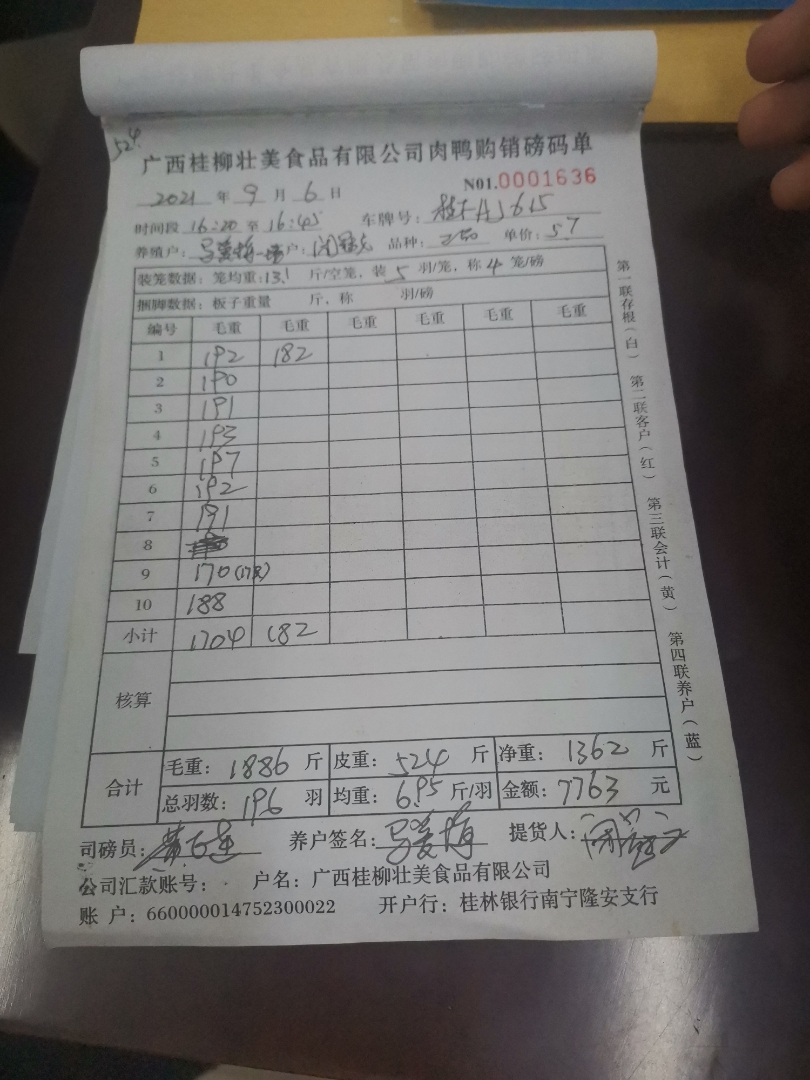 524
广西桂柳壮美食品有限公司肉鸭购销磅码单
2021 年 9 月 6 日 N01.0001636
时间段 16:20 至 16:45 车牌号: 桂AJ615
养殖户: 户: 品种: 单价: 5.7
装笼数据: 笼均重:13.1 斤/空笼, 装 5 羽/笼, 称 4 笼/磅
捆脚数据: 板子重量 斤, 称 羽/磅
编号 毛重 毛重 毛重 毛重 毛重 毛重
1 192 182
2 190
3 191
4 193
5 197
6 192
7 191
8
9 170(17只)
10 188
小计 1704 182
核算
合计 毛重: 1886 斤 皮重: 524 斤 净重: 1362 斤
总羽数: 196 羽 均重: 6.95 斤/羽 金额: 7763 元
司磅员: 养户签名: 提货人:
公司汇款账号: 户名: 广西桂柳壮美食品有限公司
账 户: 660000014752300022 开户行: 桂林银行南宁隆安支行
第一联存根(白) 第二联客户(红) 第三联会计(黄) 第四联养户(蓝)